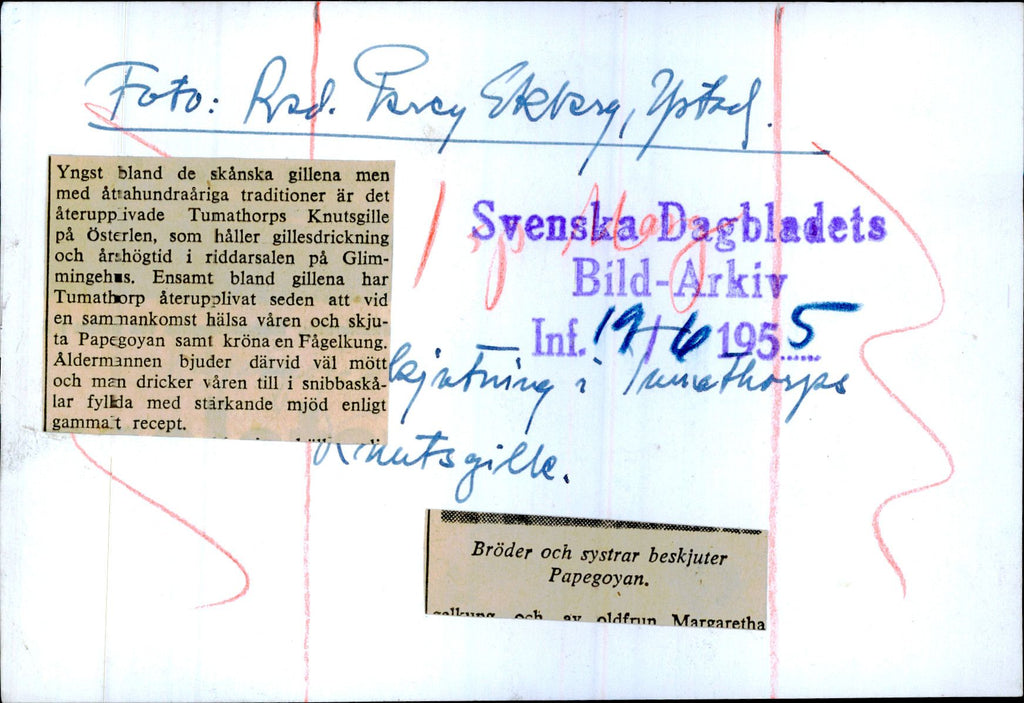 Foto: Red. Percy Ekberg, Ystad.
Yngst bland de skånska gillena men
med åttahundraåriga traditioner är det
återupplivade Tumathorps Knutsgille
på Österlen, som håller gillesdrickning
och årshögtid i riddarsalen på Glim-
mingehus. Ensamt bland gillena har
Tumathorp återupplivat seden att vid
en sammankomst hälsa våren och skju-
ta Papegoyan samt kröna en Fågelkung.
Åldermannen bjuder därvid väl mött
och man dricker våren till i snibbaskå-
lar fyllda med stärkande mjöd enligt
gammalt recept.
Svenska Dagbladets
Bild-Arkiv
Inf. 19/6 1955
kjutning i Tumathorps
Knutsgille.
Bröder och systrar beskjuter
Papegoyan.
galkung och av oldfrun Margaretha